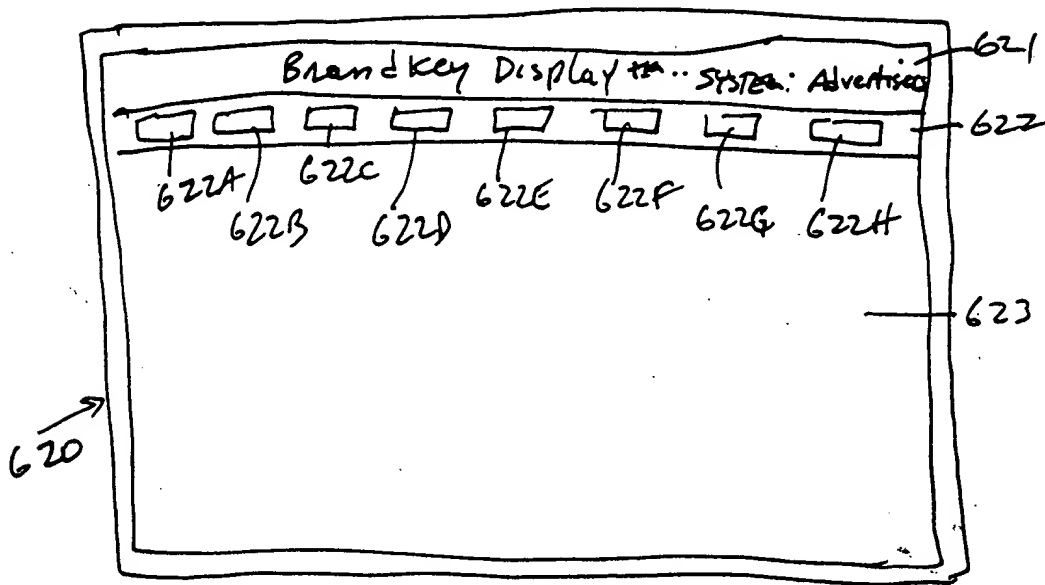 BrandKey Display ™.. SYSTEM: Advertiser
621
622
622A 622B 622C 622D 622E 622F 622G 622H
623
620